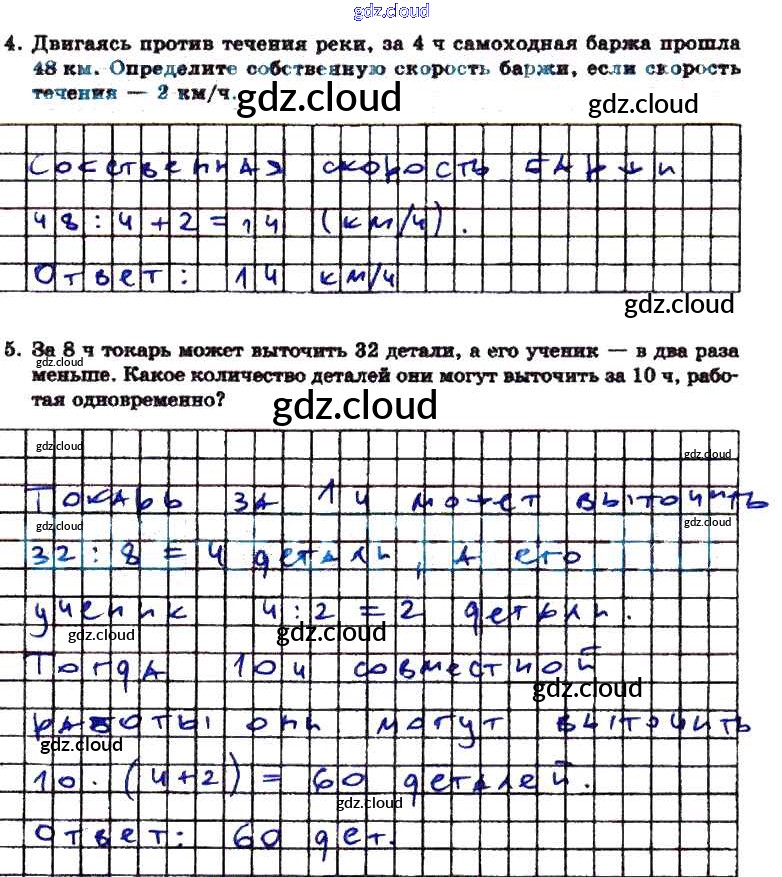 gdz.cloud
4. Двигаясь против течения реки, за 4 ч самоходная баржа прошла
48 км. Определите собственную скорость баржи, если скорость
течения — 2 км/ч.
gdz.cloud
gdz.cloud
Собственная скорость баржи
48:4+2=14 (км/ч).
Ответ: 14 км/ч
gdz.cloud
5. За 8 ч токарь может выточить 32 детали, а его ученик — в два раза
gdz.cloud
меньше. Какое количество деталей они могут выточить за 10 ч, рабо-
тая одновременно?
gdz.cloud
gdz.cloud
gdz.cloud
Токарь за 1ч может выточить
gdz.cloud
gdz.cloud
32:8=4 детали, а его
ученик 4:2=2 детали.
gdz.cloud
gdz.cloud
Тогда 10ч совместной
gdz.cloud
работы они могут выточить
gdz.cloud
10·(4+2)=60 деталей.
gdz.cloud
Ответ: 60 дет.